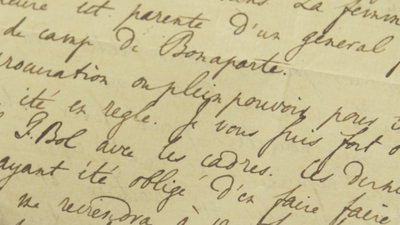 est parente d'un général
de camp de Bonaparte.
procuration ou plein pouvoir pour
été en règle. Je vous suis fort
F. Bol avec les cadres. Ces
ayant été obligé d'en faire faire
me reviendra à